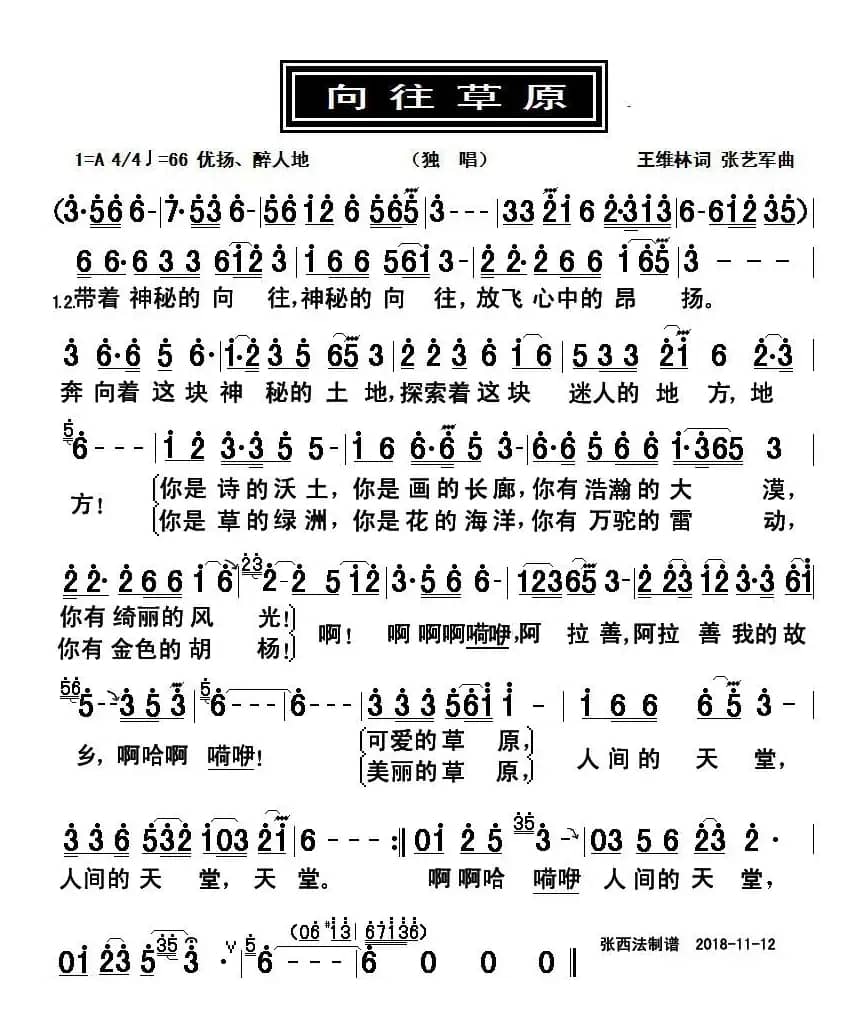 向往草原
1=A 4/4♩=66 优扬、醉人地 （独 唱） 王维林词 张艺军曲
(3·56 6-|7·53 6-|56 12 6 565|3---|33 21 6 2·313|6-612 35)|
6 6·6 3 3 612 3|1 6 6 561 3-|2 2·2 6 6 165|3---|
1.2.带着 神秘的 向 往,神秘的 向 往, 放飞 心中的 昂 扬。
3 6·6 5 6·|1·2 3 5 65 3|2 2·3 6 1 6|5 3 3 21 6 2·3|
奔 向着 这 块 神 秘的 土 地,探索着 这块 迷人的 地 方, 地
5 6---|1 2 3·3 5 5-|1 6 6·6 5 3-|6·6 5 6 6 1·365 3|
方! 你是 诗的沃 土, 你是 画的长 廊,你有 浩瀚的 大 漠,
你是 草的绿 洲, 你是 花的海 洋,你有 万驼的 雷 动,
2 2·2 6 6 1 6|23 2-2 5 12|3·5 6 6-|12365 3-|2 23 12 3·3 61|
你有 绮丽的 风 光! 啊! 啊 啊啊嗬咿,阿 拉 善,阿拉 善 我的 故
你有 金色的 胡 杨!
56 5-3 5 3|5 6---|6---|3 3 3 561 1-|1 6 6 6 5 3-|
乡, 啊哈啊 嗬咿! 可爱的 草 原, 人 间 的 天 堂,
美丽的 草 原,
3 3 6 532 103 21|6---:||01 2 5 35 3-|03 5 6 23 2·|
人间的 天 堂, 天 堂。 啊 啊哈 嗬咿 人 间的 天 堂,
(06 #13|67136)
01 23 5 35 3·∨5 6---|6 0 0 0‖ 张西法制谱 2018-11-12